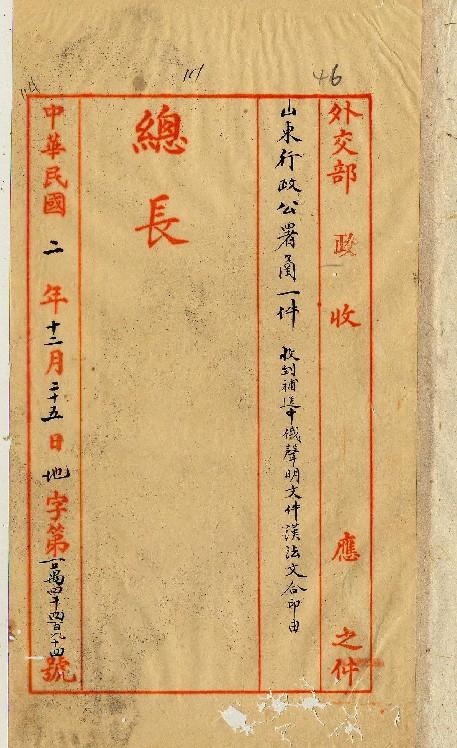 46
101
外交部 政 收 應 之件
山東行政公署圅一件 收到補送中俄聲明文件漢法文合印由
總長
中華民國二年十二月二十五日地字第一百萬四千四百九十四號